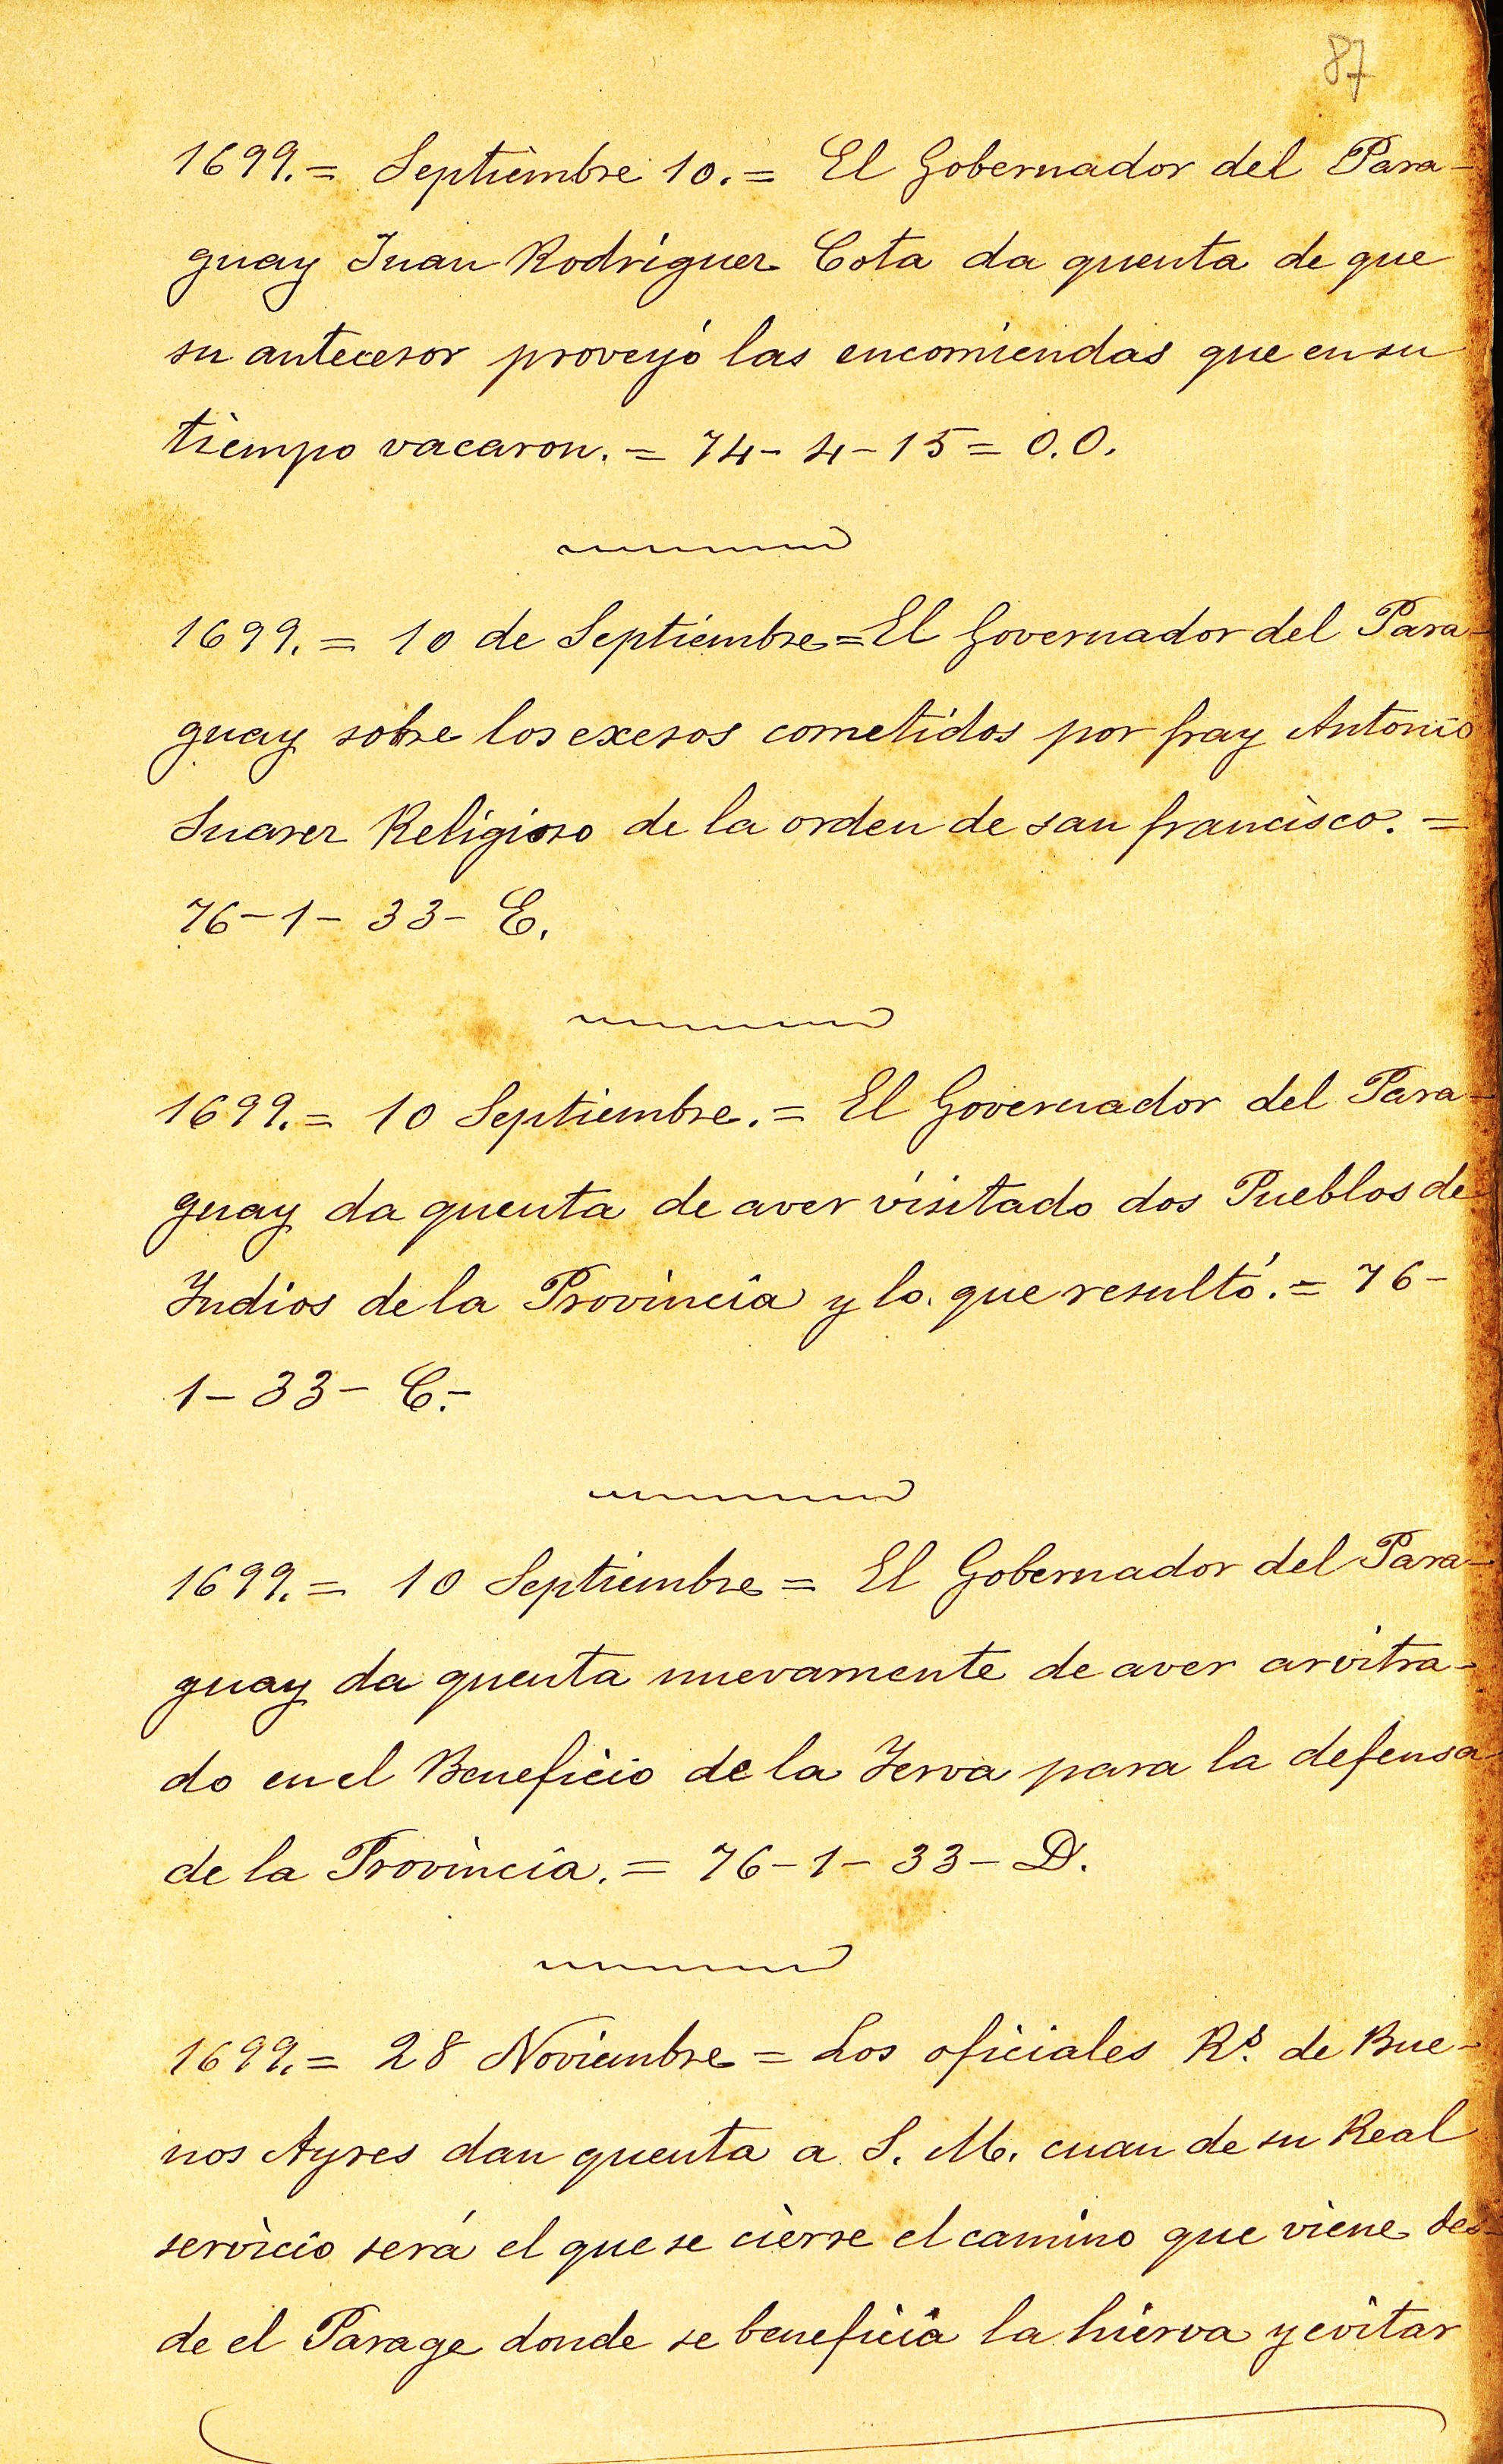 87
1699.= Septiembre 10.= El Gobernador del Para-
guay Juan Rodriguez Cota da quenta de que
su antecesor proveyó las encomiendas que en su
tiempo vacaron.= 74-4-15= O.O.
1699.= 10 de Septiembre=El Governador del Para-
guay sobre los exesos cometidos por fray Antonio
Suarez Religioso de la orden de san francisco.=
76-1-33- E.
1699.= 10 Septiembre.= El Governador del Para-
guay da quenta de aver visitado dos Pueblos de
Indios de la Provincia y lo que resultó.= 76-
1-33- C.-
1699.= 10 Septiembre= El Gobernador del Para-
guay da quenta nuevamente de aver arvitra-
do en el Beneficio de la Yerva para la defensa
de la Provincia.= 76-1-33-D.
1699.= 28 Noviembre= Los oficiales R.s de Bue-
nos Ayres dan quenta a S. M. cuan de su Real
servicio será el que se cierre el camino que viene des-
de el Parage donde se beneficia la hierva y evitar